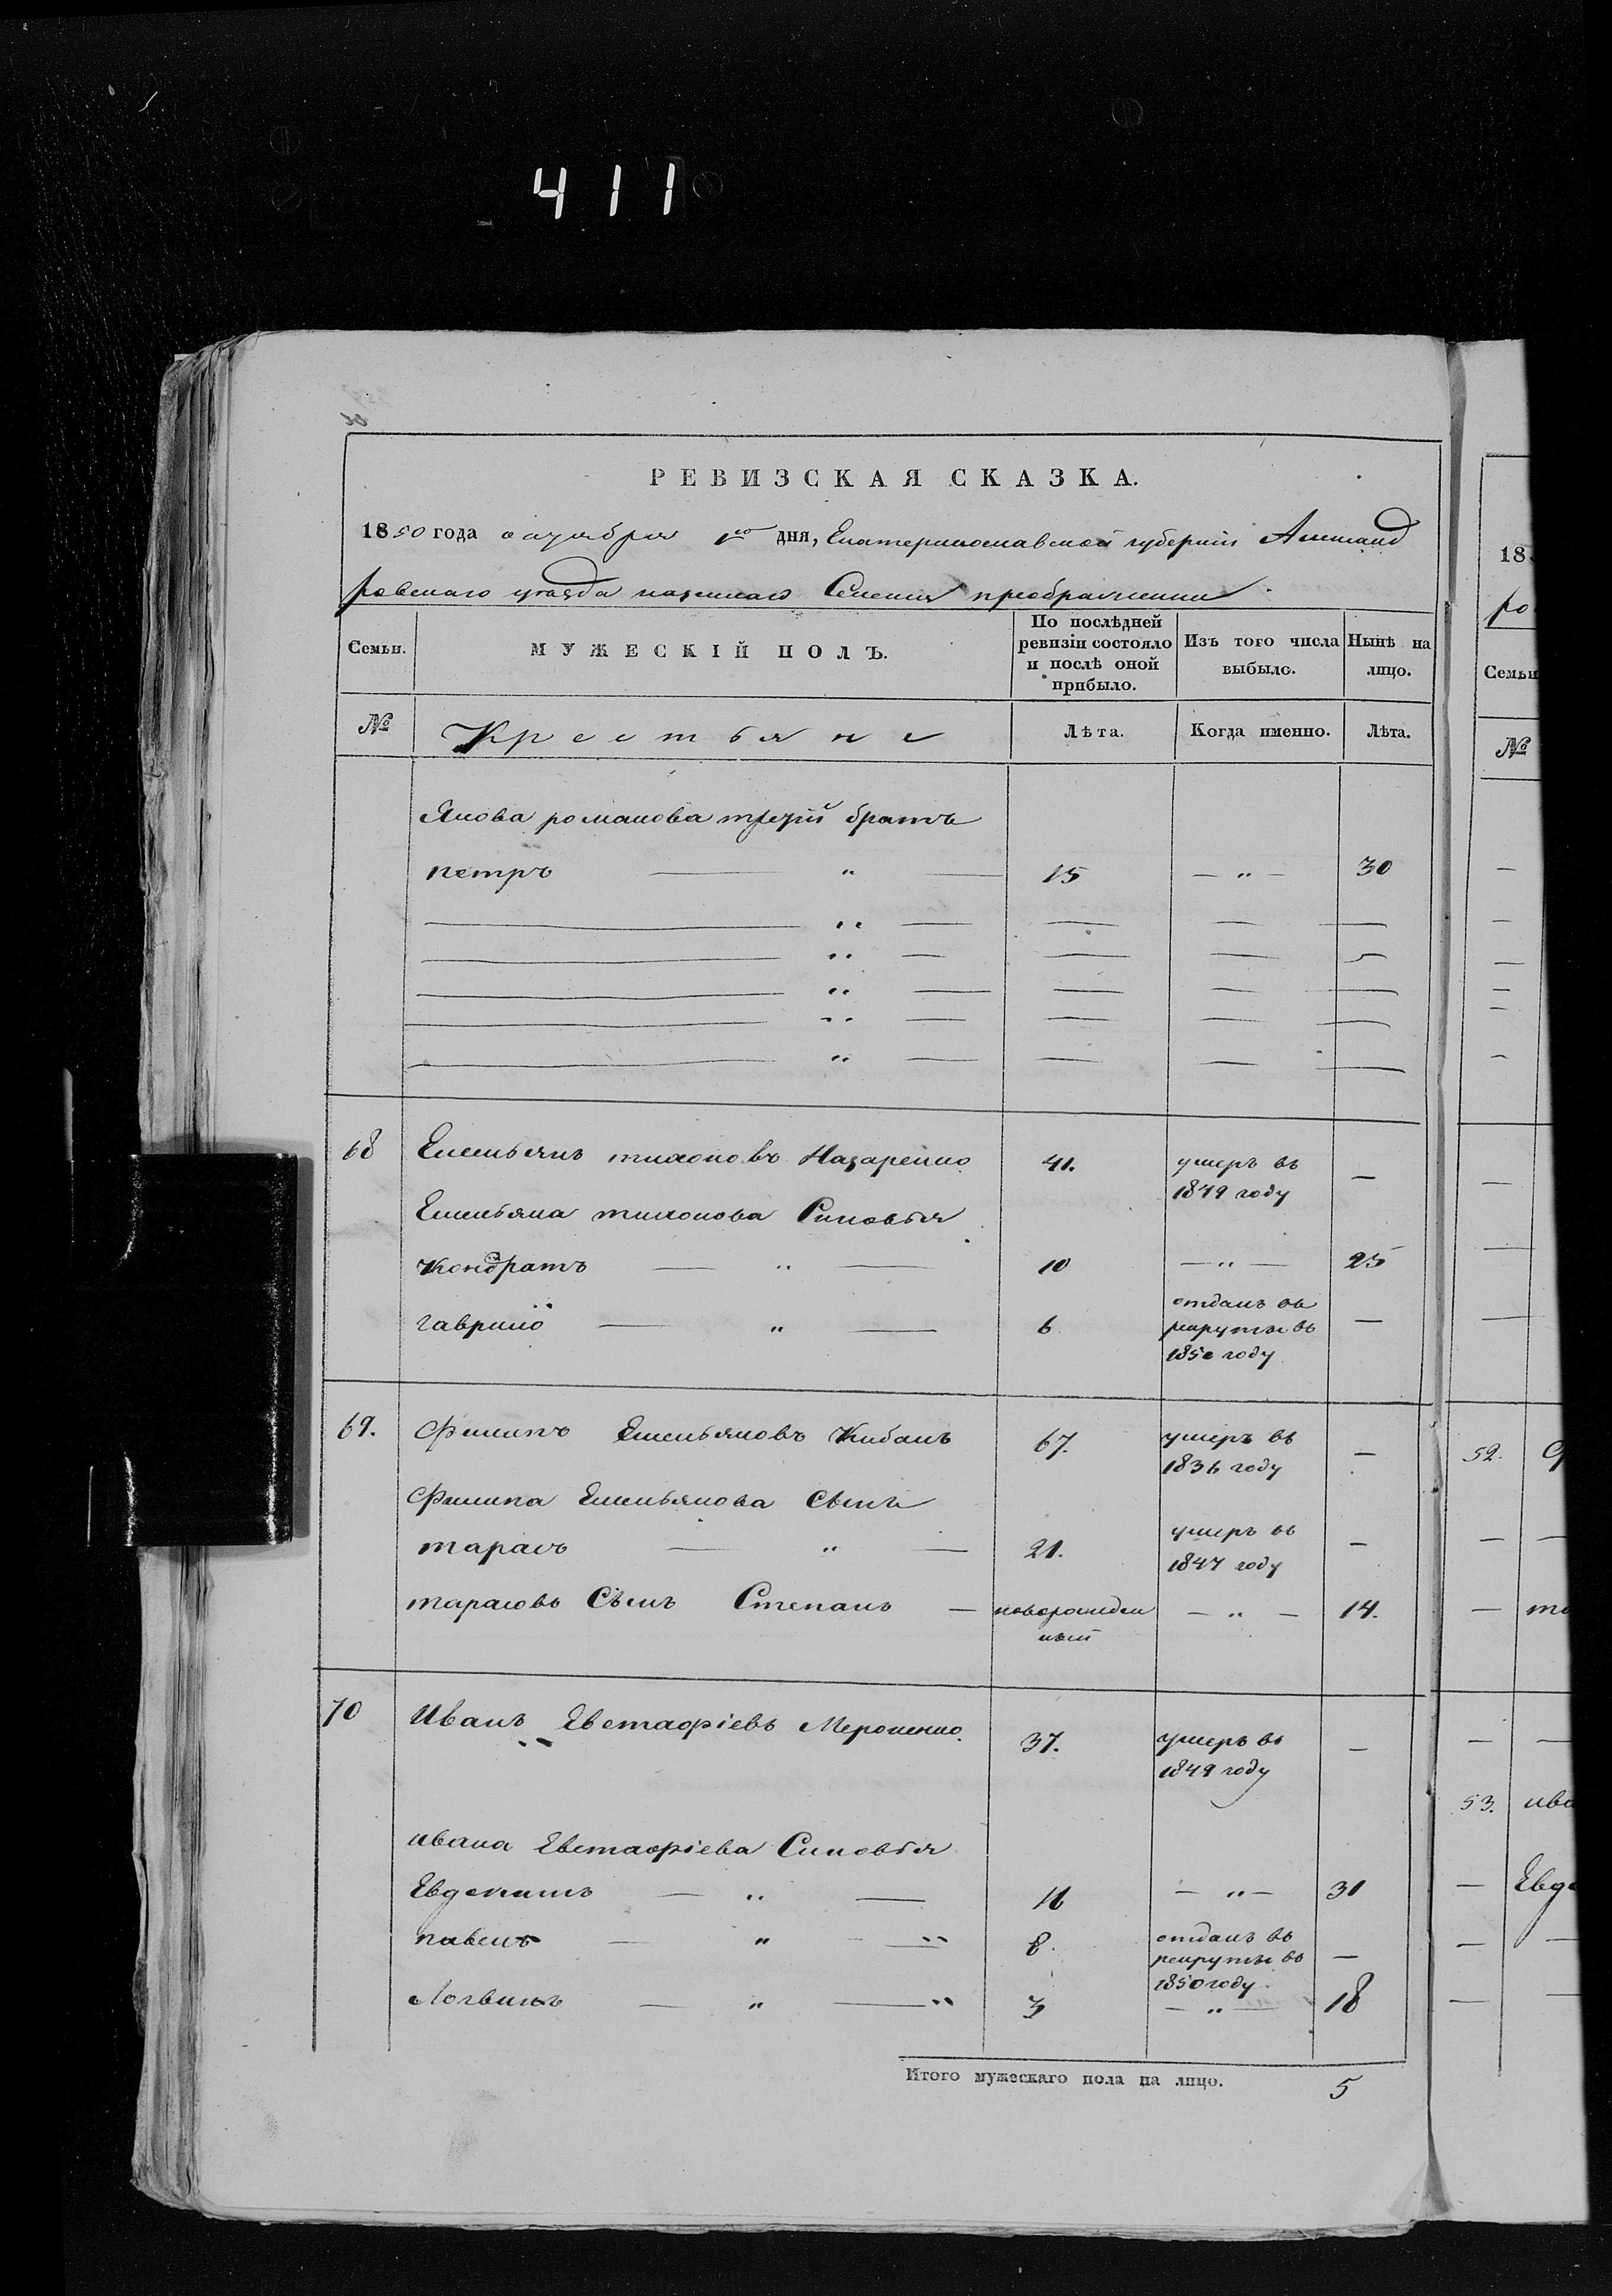 411
РЕВИЗСКАЯ СКАЗКА.
1850 года октября 1го дня, Екатеринославской губерніи Александ
ровскаго уѣзда казеннаго Селенія преображенки
Семьи.
МУЖЕСКІЙ ПОЛЪ.
По послѣдней ревизіи состояло и послѣ оной прибыло.
Изъ того числа выбыло.
Нынѣ на лицо.
№ Крестьяне Лѣта. Когда именно. Лѣта.
Якова романова третій братъ
петръ — " — 15 — " — 30
68 Емельянъ тихоновъ Назаренко 41. умеръ въ 1849 году —
Емельяна тихонова Синовья
Кондратъ — " — 10 — " — 25
гаврило — " — 6 отданъ въ рекруты въ 1850 году —
69. Филипъ Емельяновъ Кибанъ 67. умеръ въ 1836 году —
Филипа Емельянова Сынъ
тарасъ — " — 21. умеръ въ 1847 году —
тарасовъ Сынъ Степанъ — новорожден ный — " — 14.
70 Иванъ Евстафіевъ Мерошенко 37. умеръ въ 1849 году —
ивана Евстафіева Синовья
Евдокимъ — " — 16 — " — 31
павелъ — " — " 8. отданъ въ рекруты въ 1850 году —
Логвинъ — " — " 3 — " — 18
Итого мужескаго пола на лицо. 5
18
ро
Семьи
№
52.
53. ива
Евдо